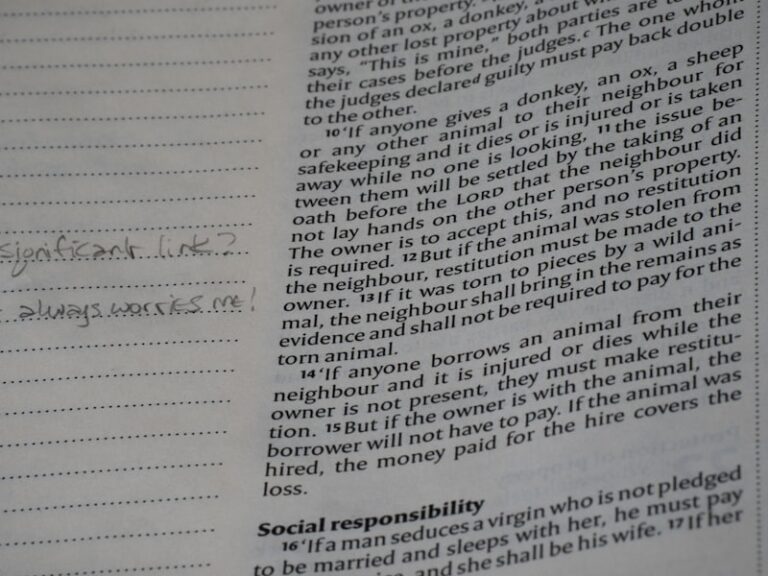 owner of
person's property.
sion of an ox, a donkey, a
any other lost property about
says, "This is mine," both parties are to
their cases before the judges.c The one whom
the judges declaredd guilty must pay back double
to the other.
10 'If anyone gives a donkey, an ox, a sheep
or any other animal to their neighbour for
safekeeping and it dies or is injured or is taken
away while no one is looking, 11 the issue be-
tween them will be settled by the taking of an
oath before the LORD that the neighbour did
not lay hands on the other person's property.
The owner is to accept this, and no restitution
is required. 12 But if the animal was stolen from
the neighbour, restitution must be made to the
owner. 13 If it was torn to pieces by a wild ani-
mal, the neighbour shall bring in the remains as
evidence and shall not be required to pay for the
torn animal.
14 'If anyone borrows an animal from their
neighbour and it is injured or dies while the
owner is not present, they must make restitu-
tion. 15 But if the owner is with the animal, the
borrower will not have to pay. If the animal was
hired, the money paid for the hire covers the
loss.
Social responsibility
16 'If a man seduces a virgin who is not pledged
to be married and sleeps with her, he must pay
and she shall be his wife. 17 If her
significant link?
always worries me!